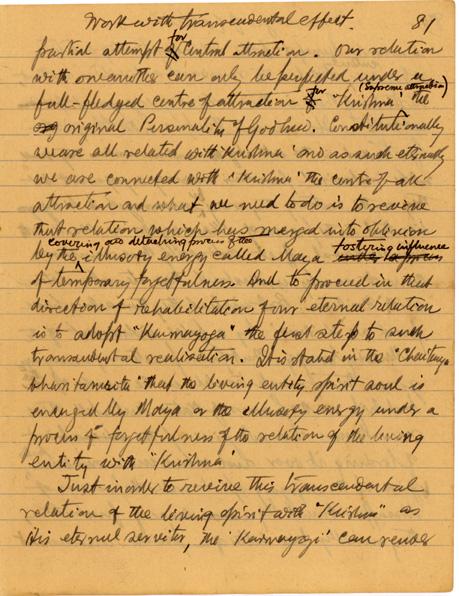 Work with transcendental effect. 81
partial attempt for Central attraction. Our relation
with one another can only be perfected under a
full-fledged centre of attraction for (Supreme attraction) "Krishna" the
original Personality of Godhead. Constitutionally
we are all related with Krishna and as such eternally
we are connected with 'Krishna' the centre of all
attraction and what we need to do is to revive
that relation which has merged into oblivion
by the covering and detaching process of the illusory energy called Maya fostering influence
of temporary forgetfulness. And to proceed in that
direction of rehabilitation of our eternal relation
is to adopt "Karmayoga" the first step to such
transcendental realisation. It is stated in the "Chaitanya
Charitamrita" that the living entity spirit soul is
engaged by Maya or the illusory energy under a
process of forgetfulness of the relation of the living
entity with "Krishna"
Just in order to revive this transcendental
relation of the living spirit with "Krishna" as
His eternal servitor, the 'Karmayogi' can render